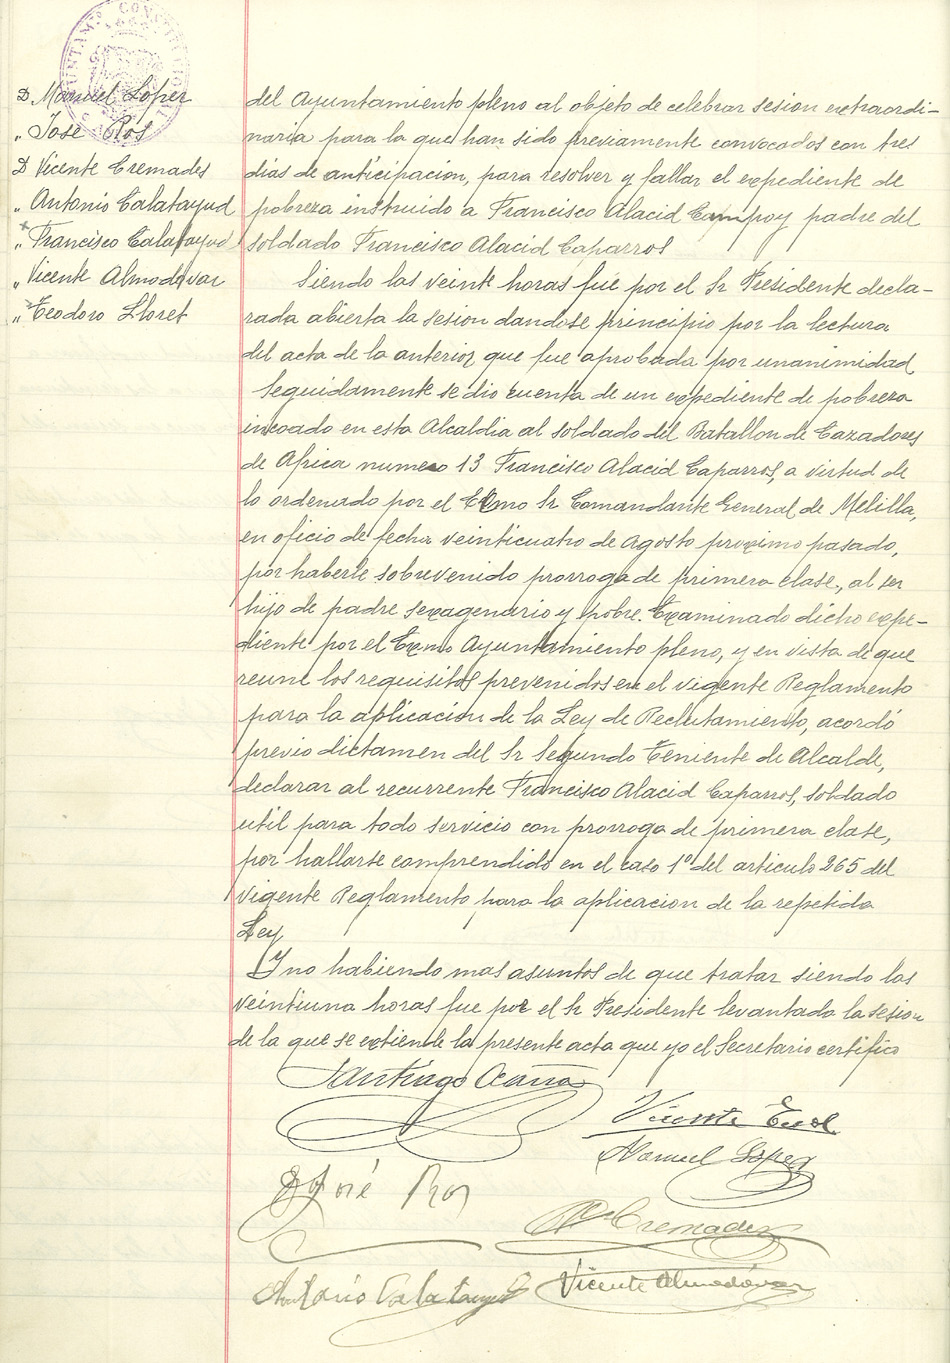 D Manuel Lopez
" José Ros
D Vicente Cremades
" Antonio Calatayud
" Francisco Calatayud
" Vicente Almodovar
" Teodoro Lloret
del Ayuntamiento pleno al objeto de celebrar sesion extraordi-
naria para la que han sido previamente convocados con tres
dias de anticipacion, para resolver y fallar el expediente de
pobreza instruido a Francisco Alacid Campoy padre del
soldado Francisco Alacid Caparros
Siendo las veinte horas fué por el Sr Presidente decla-
rada abierta la sesion dandose principio por la lectura
del acta de la anterior, que fue aprobada por unanimidad
Seguidamente se dio cuenta de un expediente de pobreza
incoado en esta Alcaldia al soldado del Batallon de Cazadores
de Africa numero 13 Francisco Alacid Caparros, a virtud de
lo ordenado por el Exmo Sr Comandante General de Melilla,
en oficio de fecha veinticuatro de Agosto proximo pasado,
por haberle sobrevenido prorroga de primera clase, al ser
hijo de padre sexagenario y pobre. Examinado dicho expe-
diente por el Exmo Ayuntamiento pleno, y en vista de que
reune los requisitos prevenidos en el vigente Reglamento
para la aplicacion de la Ley de Reclutamiento, acordó
previo dictamen del Sr Segundo Teniente de Alcalde,
declarar al recurrente Francisco Alacid Caparros, soldado
util para todo servicio con prorroga de primera clase,
por hallarse comprendido en el caso 1º del articulo 265 del
vigente Reglamento para la aplicacion de la repetida
Ley
Y no habiendo mas asuntos de que tratar siendo las
veintiuna horas fue por el Sr Presidente levantada la sesion
de la que se extiende la presente acta que yo el Secretario certifico
Santiago Ocaña
Vicente
Manuel Lopez
José Ros
Vte Cremades
Antonio Calatayud
Vicente Almodóvar